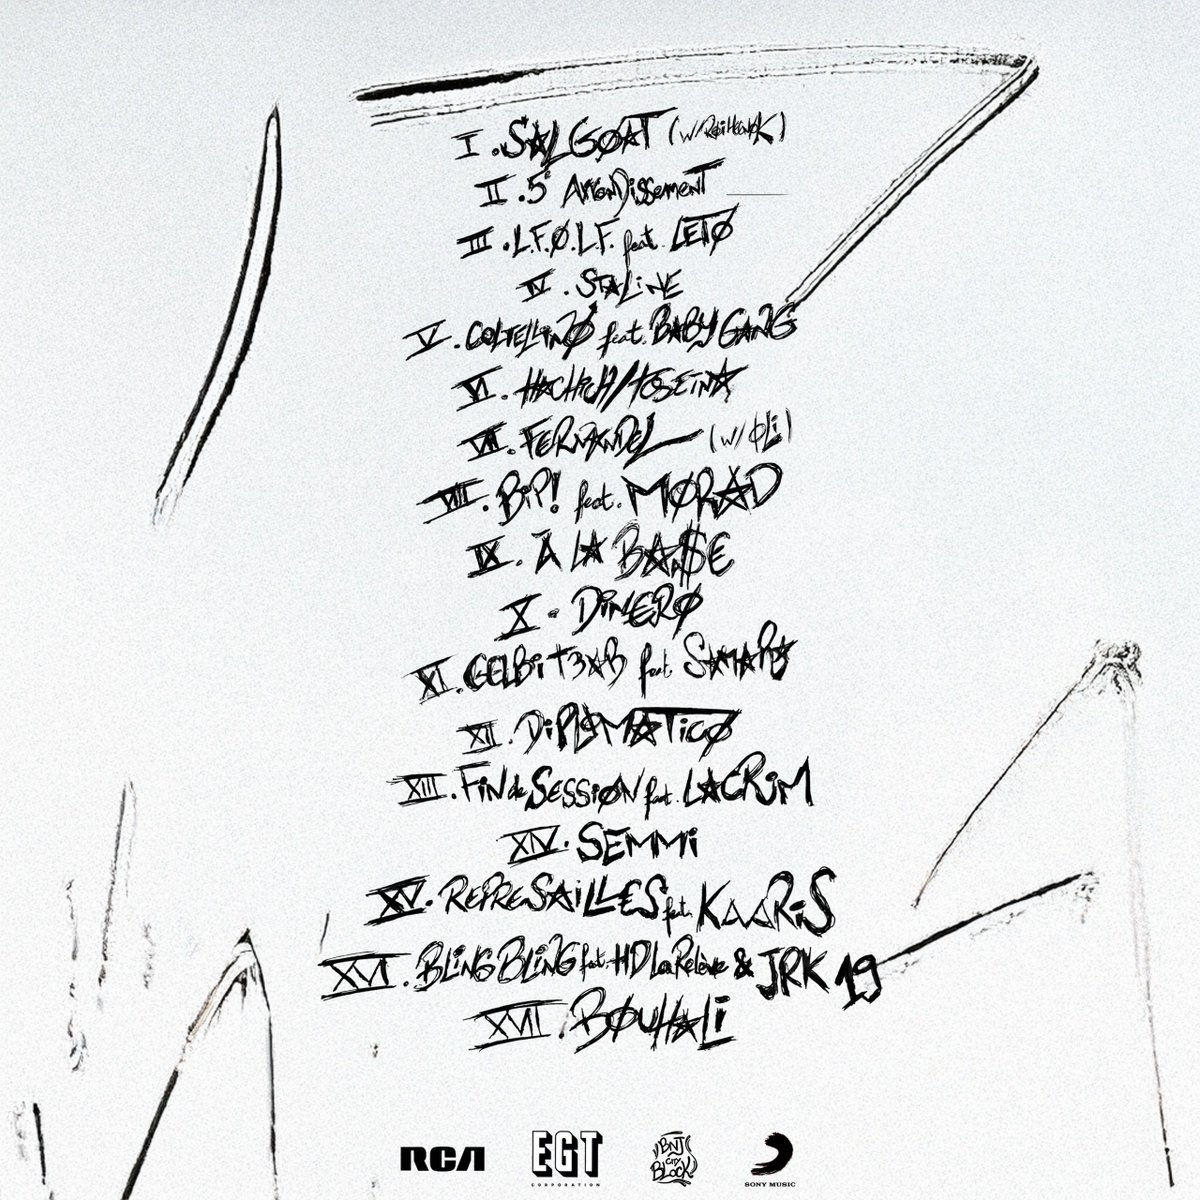 I. SALGØAT (W/ROBI HEARTBREAK)
II. 5° ArronDissemenT
III. L.F.Ø.L.F. feat. LETØ
IV. STALiNE
V. COLTELLiNØ feat. BABY GANG
VI. HACHiCH/HOSEiNA
VII. FERNANDEL (W/ ØLi)
VIII. BiP! feat. MØRAD
IX. À LA BA$E
X. DiNERØ
XI. GELBi T3AB feat. SAMARA
XII. DiPLØMATiCØ
XIII. FiN de SESSiØN feat. LACRiM
XIV. SEMMi
XV. REPRESAiLLES feat. KAARiS
XVI. BLiNG BLiNG feat. HD La Relève & JRK 19
XVII. BØUHALi
RCA
EGT
CORPORATION
BNJ
CITY
BLOCK
SONY MUSIC